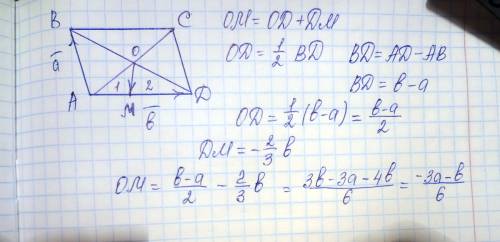 B C
O
1 2
A M D
a̅
b̅
OM = OD + DM
OD = 1/2 BD BD = AD - AB
BD = b - a
OD = 1/2 (b - a) = (b - a)/2
DM = - 2/3 b
OM = (b - a)/2 - 2/3 b = (3b - 3a - 4b)/6 = (-3a - b)/6